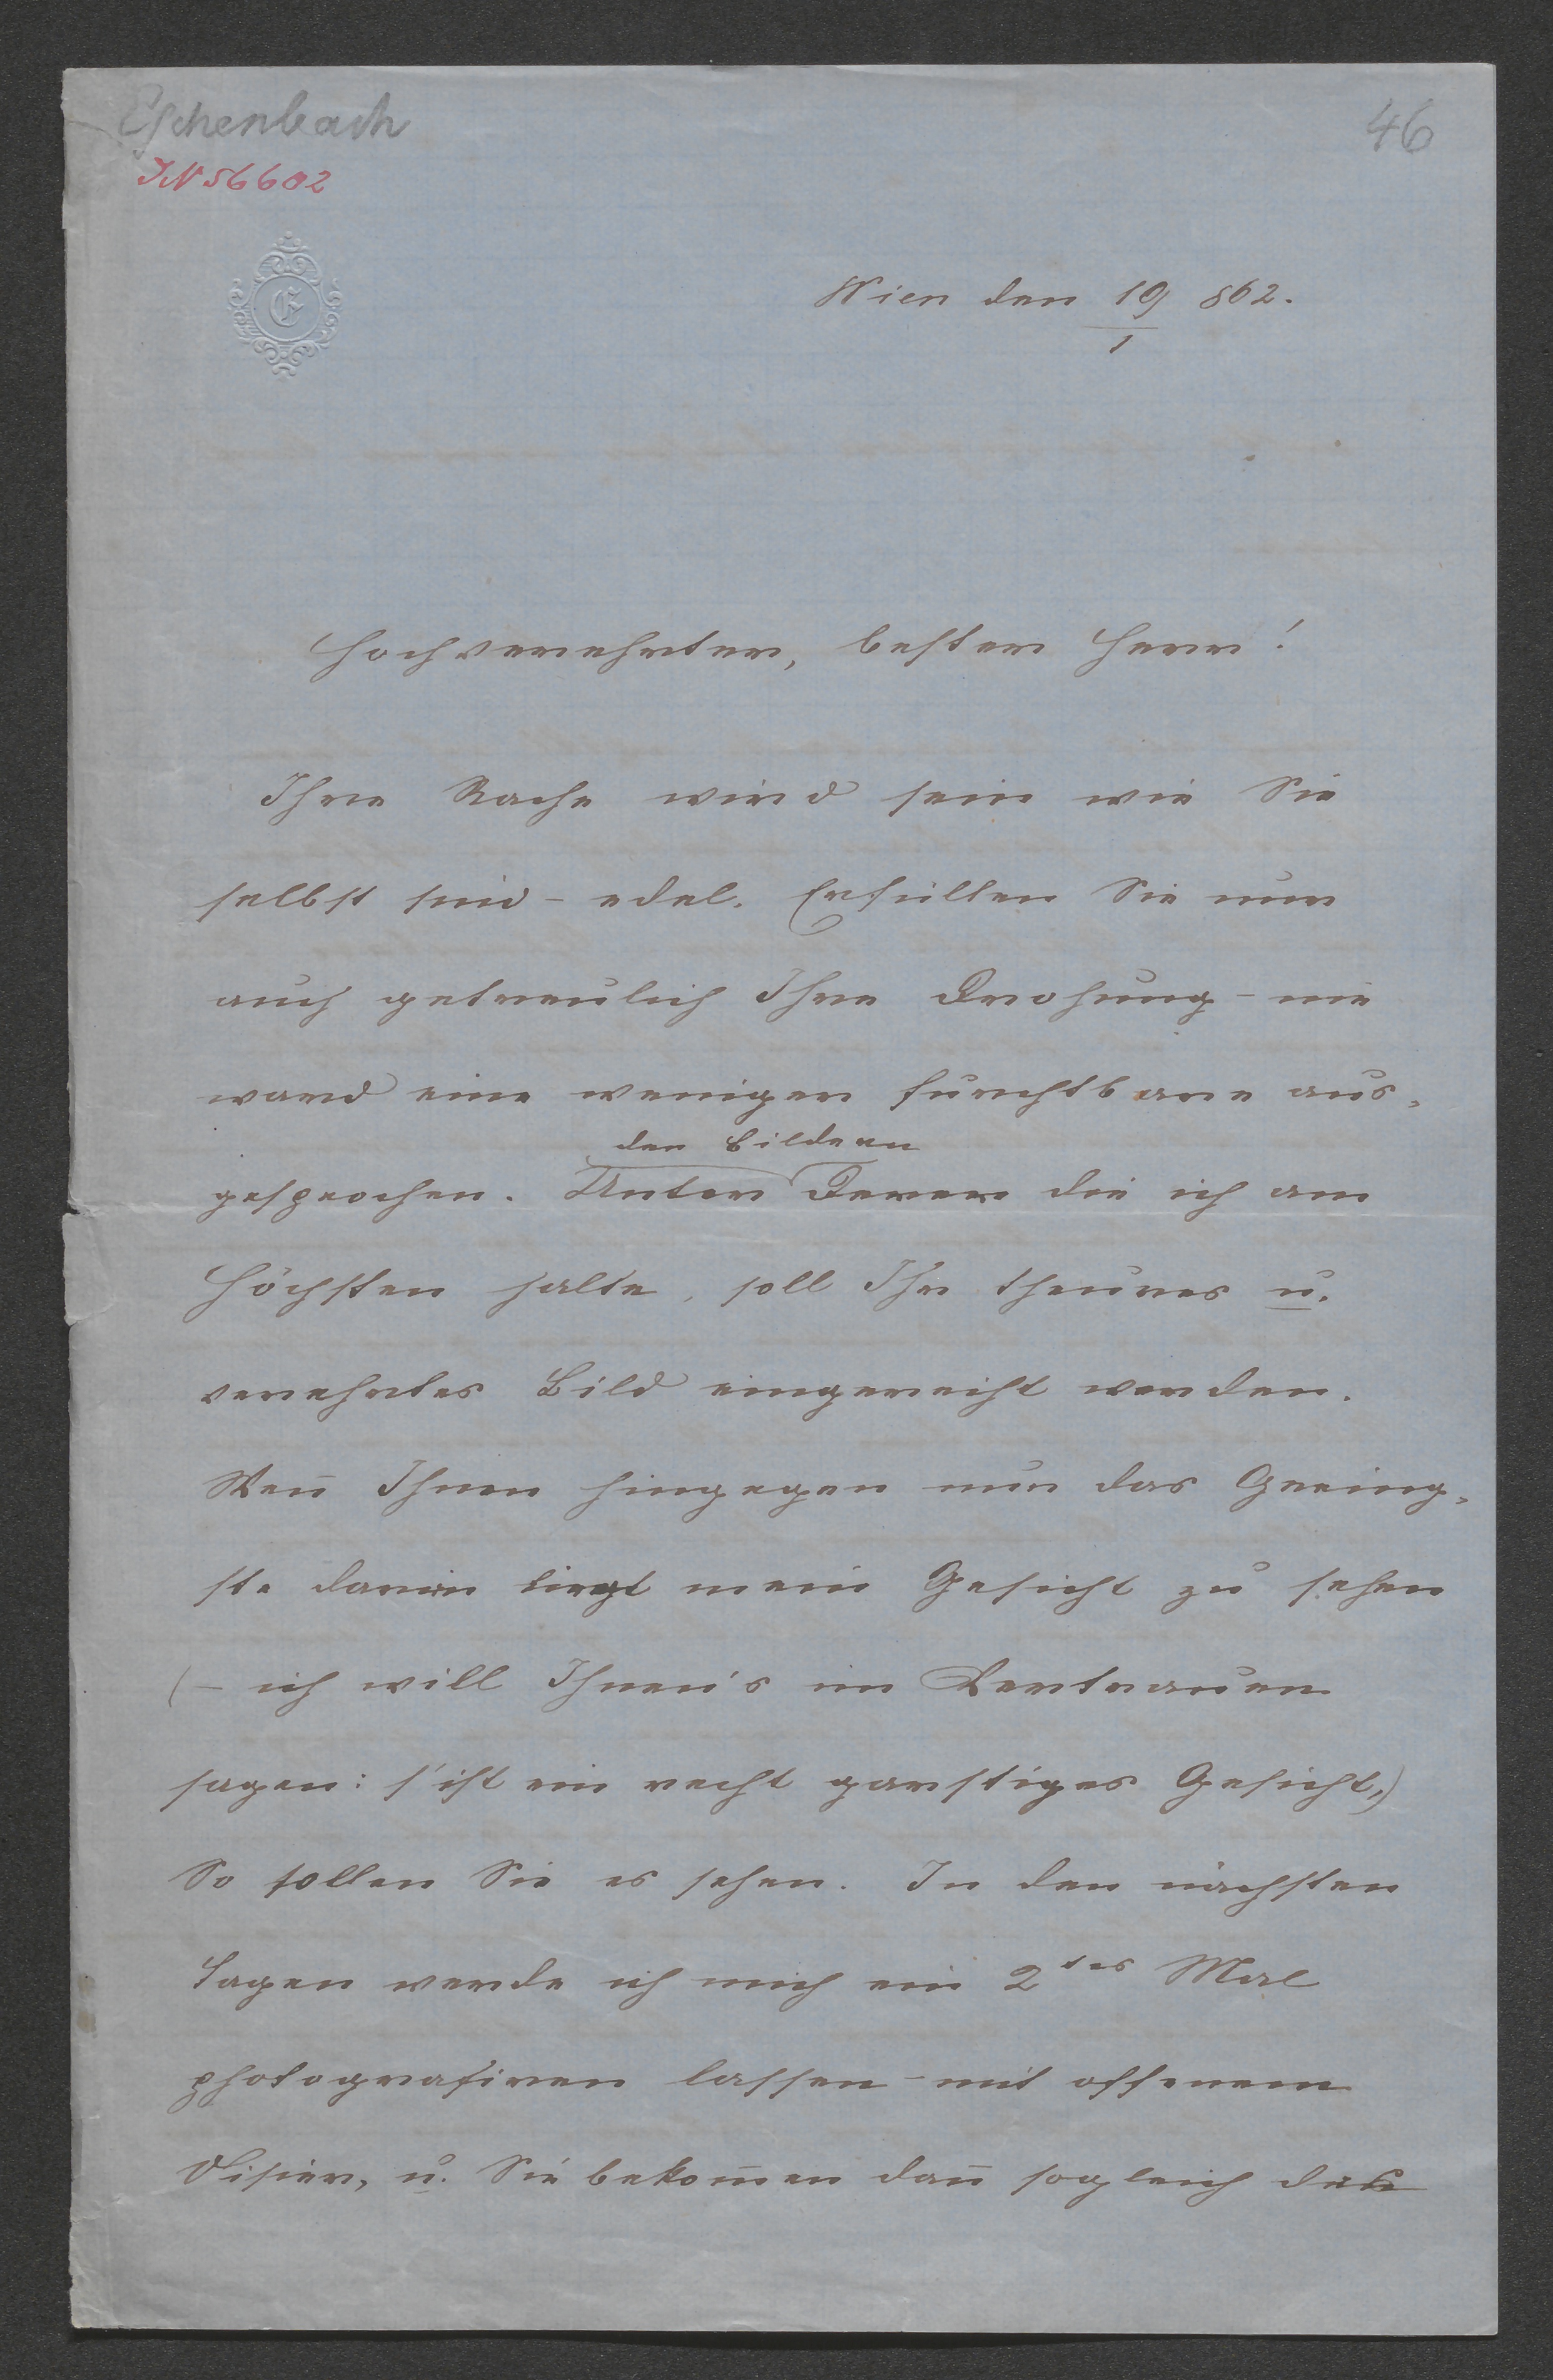 Eschenbach
46
IN 56602
E
Wien den 19/1 862.
Hochverehrter, bester Herr!
Ihre Rache wird sein wie Sie
selbst sind – edel. Erfüllen Sie nur
auch getreulich Ihre Drohung – nie
ward eine weniger furchtbare aus-
den Bildern
gesprochen. Unter Derer die ich am
Höchsten halte, soll Ihr theures u.
verehrtes Bild eingereiht werden.
Wen̄ Ihnen hingegen nur das Gering-
ste daran liegt mein Gesicht zu sehen
(– ich will Ihnen's im Vertrauen
sagen: s'ist ein recht garstiges Gesicht,)
So sollen Sie es sehen. In den nächsten
Tagen werde ich mich ein 2tes Mal
photografiren lassen – mit offenem
Visier, u. Sie bekom̄en dan̄ sogleich